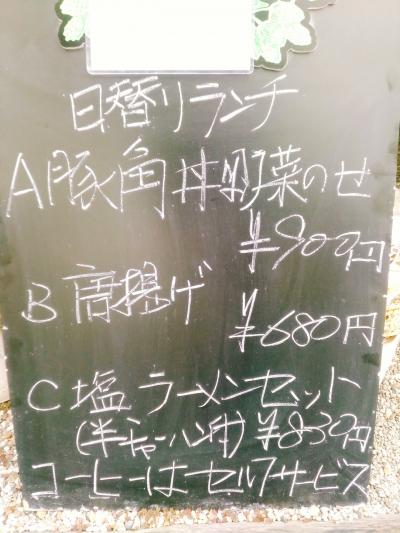 日替りランチ
A 豚角丼 野菜のせ
¥900円
B 唐揚げ
¥680円
C 塩ラーメンセット
(半チャーハン付) ¥830円
コーヒーはセルフサービス